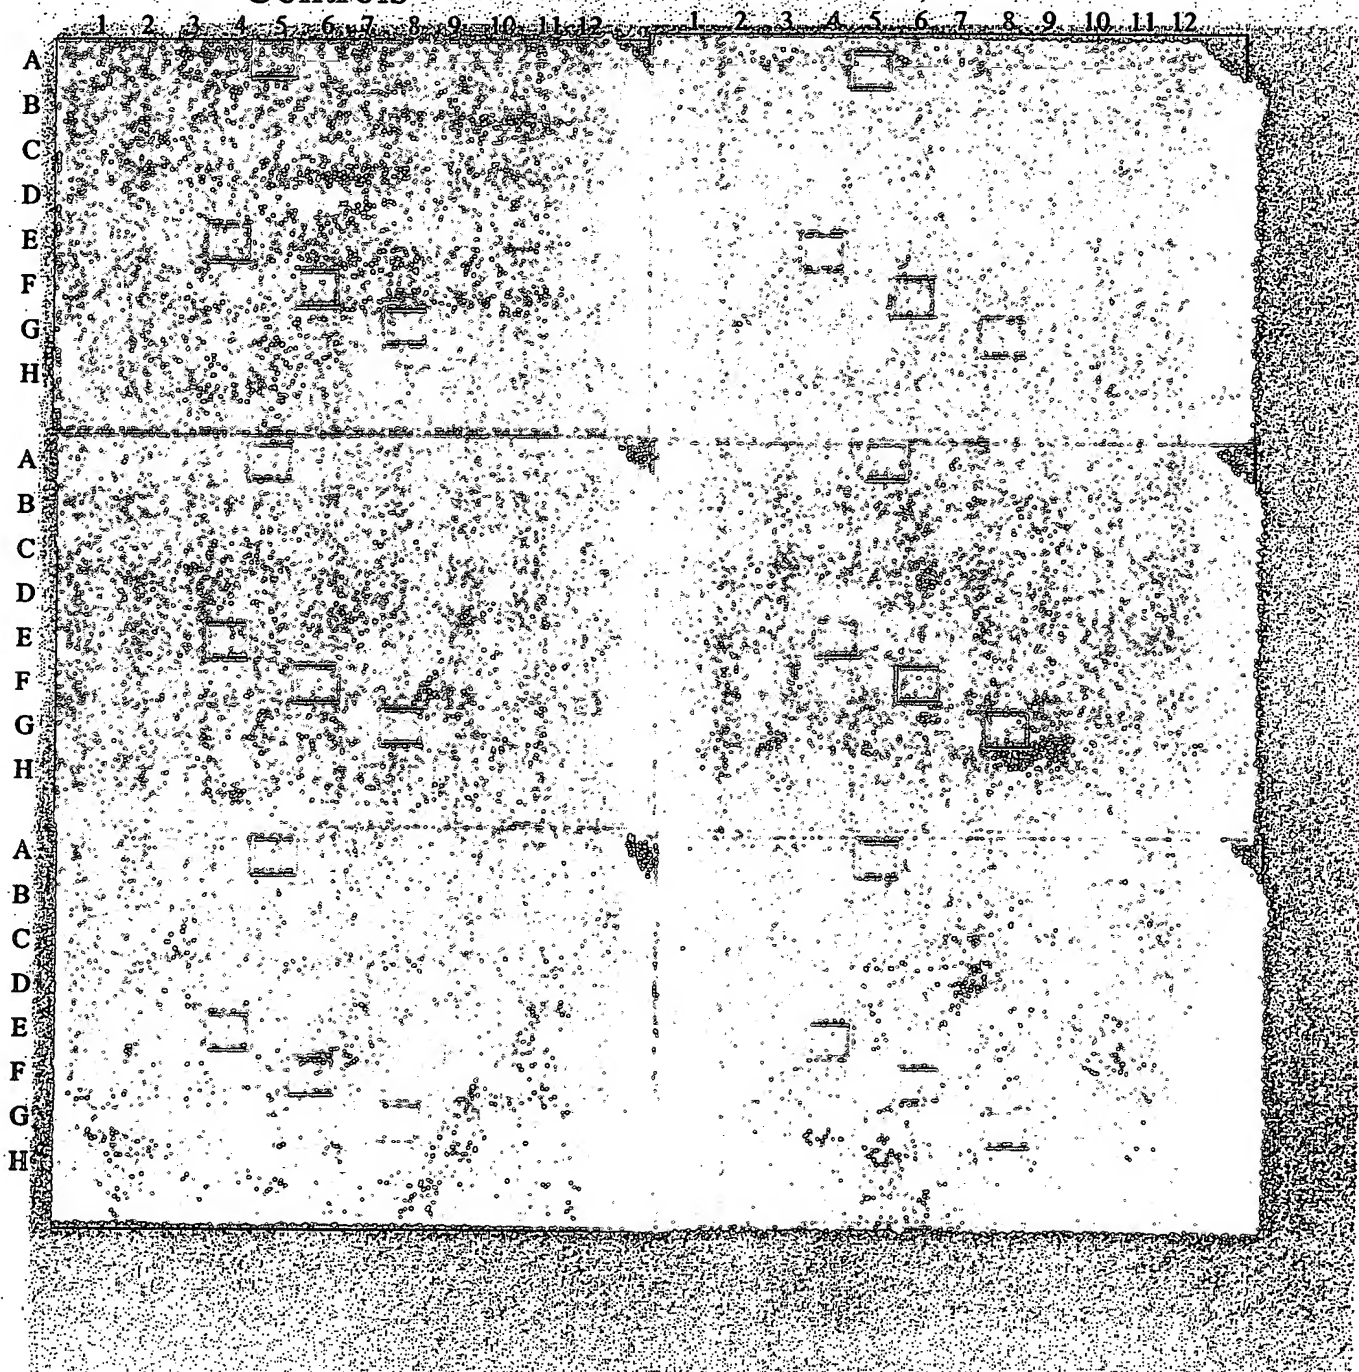 Controls
1 2 3 4 5 6 7 8 9 10 11 12 1 2 3 4 5 6 7 8 9 10 11 12
A
B
C
D
E
F
G
H
A
B
C
D
E
F
G
H
A
B
C
D
E
F
G
H